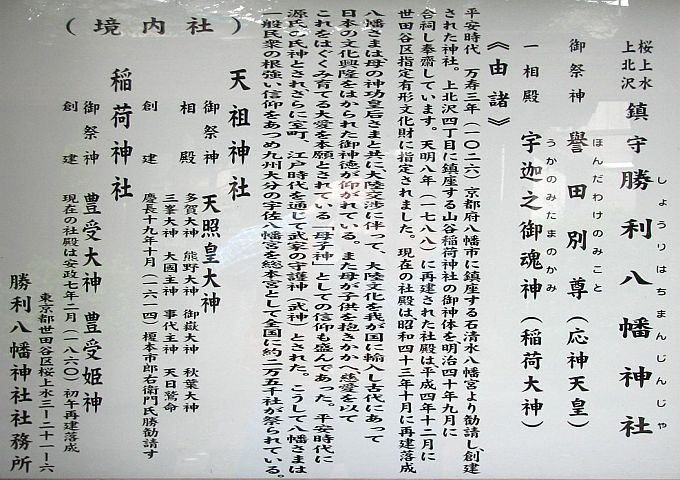 桜上水
上北沢 鎮守 勝利八幡神社
しょうりはちまんじんじゃ
御祭神 誉田別尊(応神天皇)
ほんだわけのみこと
一相殿 宇迦之御魂神(稲荷大神)
うかのみたまのかみ
《由緒》
平安時代 万寿三年(一〇二六)京都府八幡市に鎮座する石清水八幡宮より勧請し、創建
された神社。上北沢四丁目に鎮座する山谷稲荷神社の御神体を明治四十年九月に
合祠し奉齋しています。天明八年(一七八八)に再建された社殿は平成四年十二月に
世田谷区指定有形文化財に指定されました。現在の社殿は昭和四十三年十月に再建落成
八幡さまは母の神功皇后さまと共に大陸交渉に伴って、大陸文化を我が国に輸入し古代にあって
日本の文化興隆をはかられた御神徳が仰がれている。また母が子供を抱きかかへ慈愛を以て
これをはぐくみ育てる大愛を本願とされている「母子神」としての信仰も盛んであった。平安時代に
源氏の氏神とされさらに室町、江戸時代を通じて武家の守護神(武神)とされた。こうして八幡さまは
一般民衆の根強い信仰をあつめ九州大分の宇佐八幡宮を総本宮として全国に約二万五千社が祭られている。
(境内社)
天祖神社
御祭神 天照皇大神
相殿 多賀大神 熊野大神 御嶽大神 秋葉大神
三峯大神 大國主神 事代主神 天日鷲命
創建 慶長十九年十月(一六一四)榎本市郎右衛門氏勝勧請す
稲荷神社
御祭神 豊受大神 豊受姫神
創建 現在の社殿は安政七年二月(一八六〇)初午再建落成
東京都世田谷区桜上水三ー二十一ー六
勝利八幡神社社務所